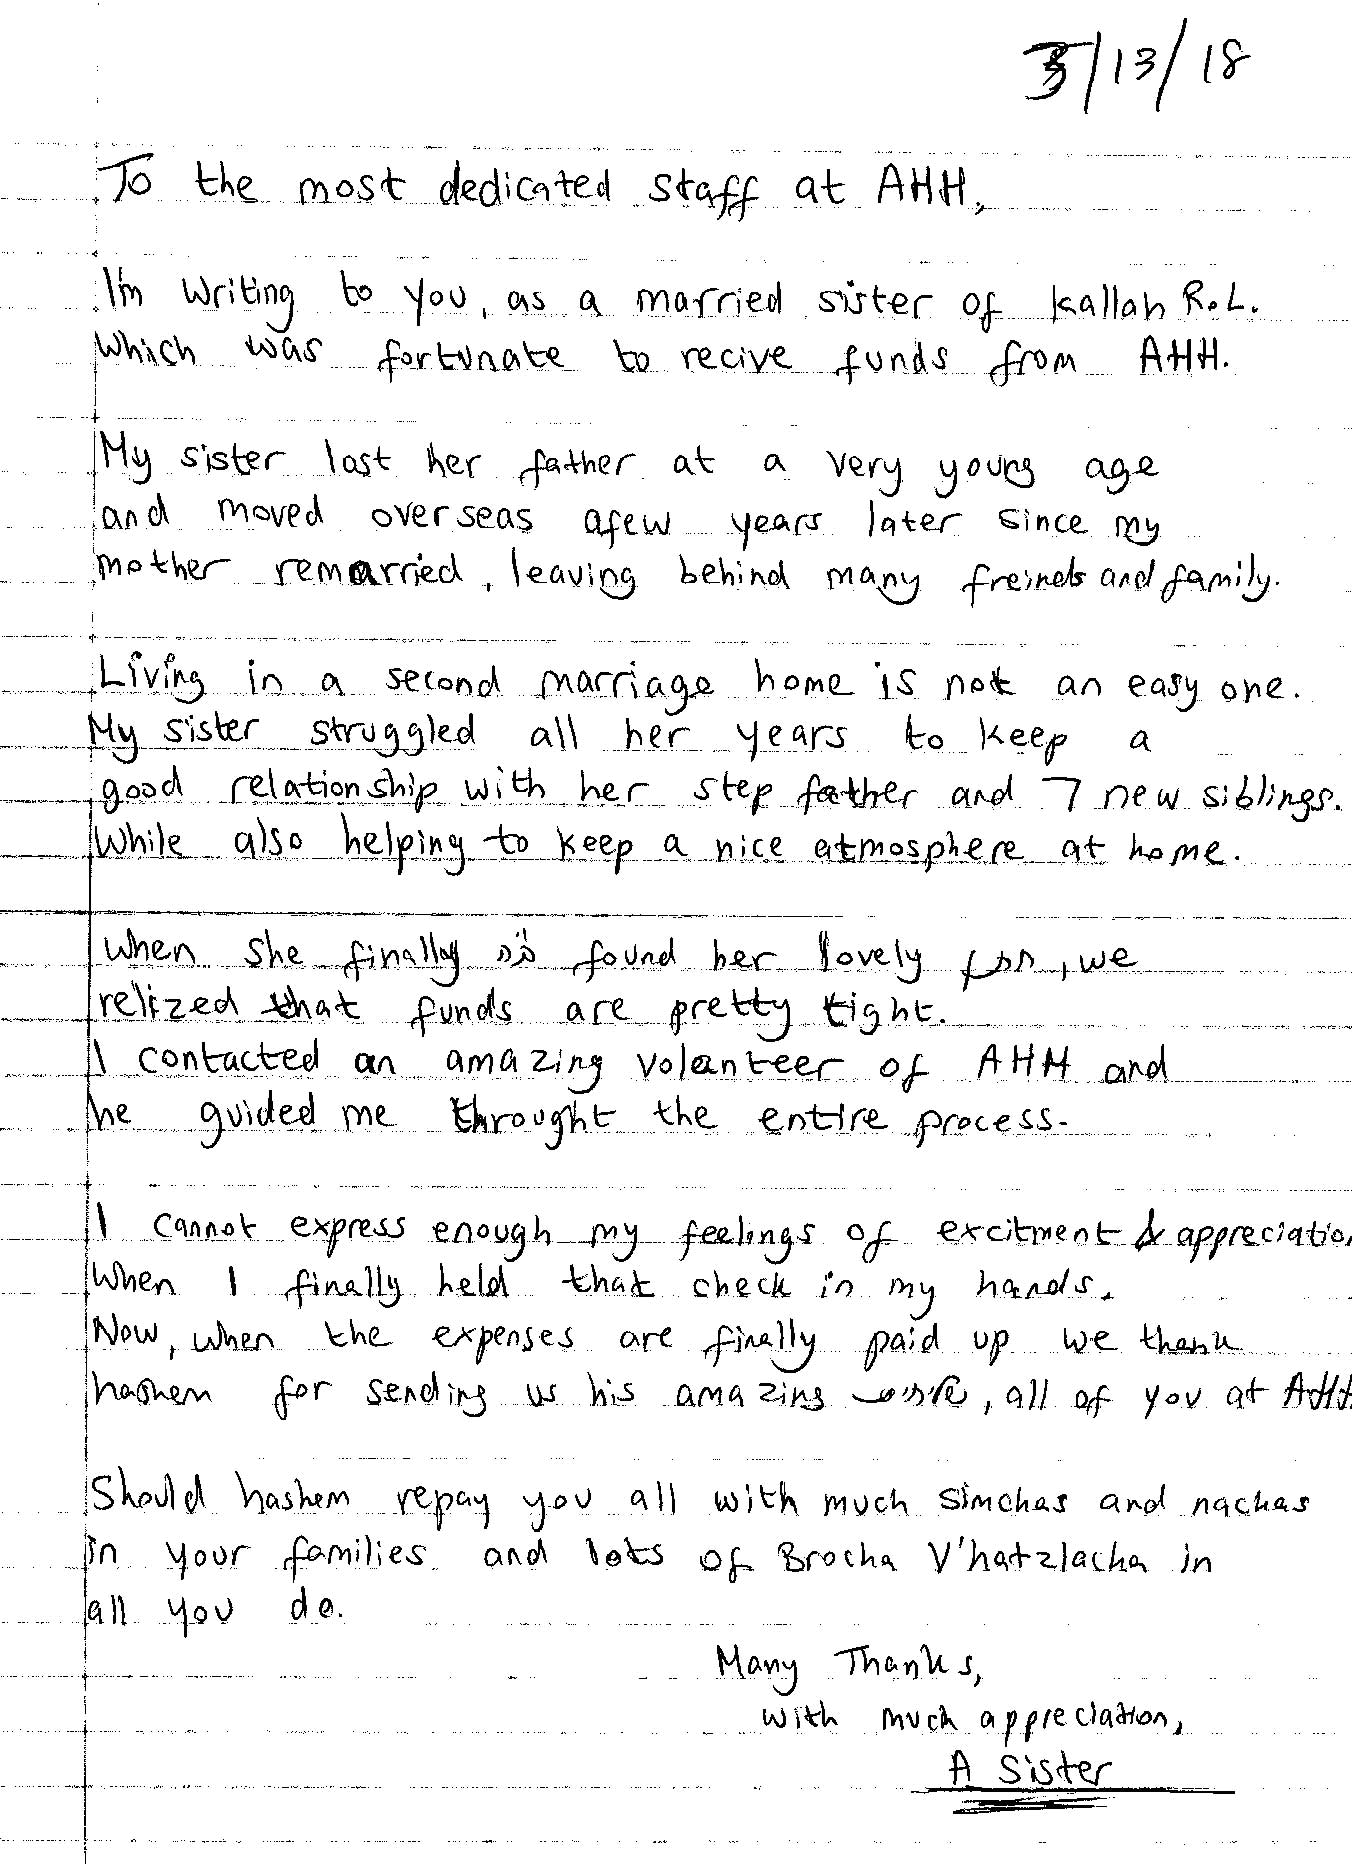 3/13/18
To the most dedicated staff at AHH,
I'm writing to you, as a married sister of kallah R.L.
Which was fortunate to recive funds from AHH.
My sister lost her father at a very young age
and moved overseas afew years later since my
mother remarried, leaving behind many freinds and family.
Living in a second marriage home is not an easy one.
My sister struggled all her years to keep a
good relationship with her step father and 7 new siblings.
While also helping to keep a nice atmosphere at home.
When she finally ב"ה found her lovely חתן, we
relized that funds are pretty tight.
I contacted an amazing volanteer of AHH and
he guided me throught the entire process.
I cannot express enough my feelings of excitment & appreciation
When I finally held that check in my hands.
Now, when the expenses are finally paid up we thank
hashem for sending us his amazing שליחים, all of you at AHH.
Should hashem repay you all with much simchas and nachas
in your families and lots of Brocha V'hatzlacha in
all you do.
Many Thanks,
with much appreciation,
A Sister